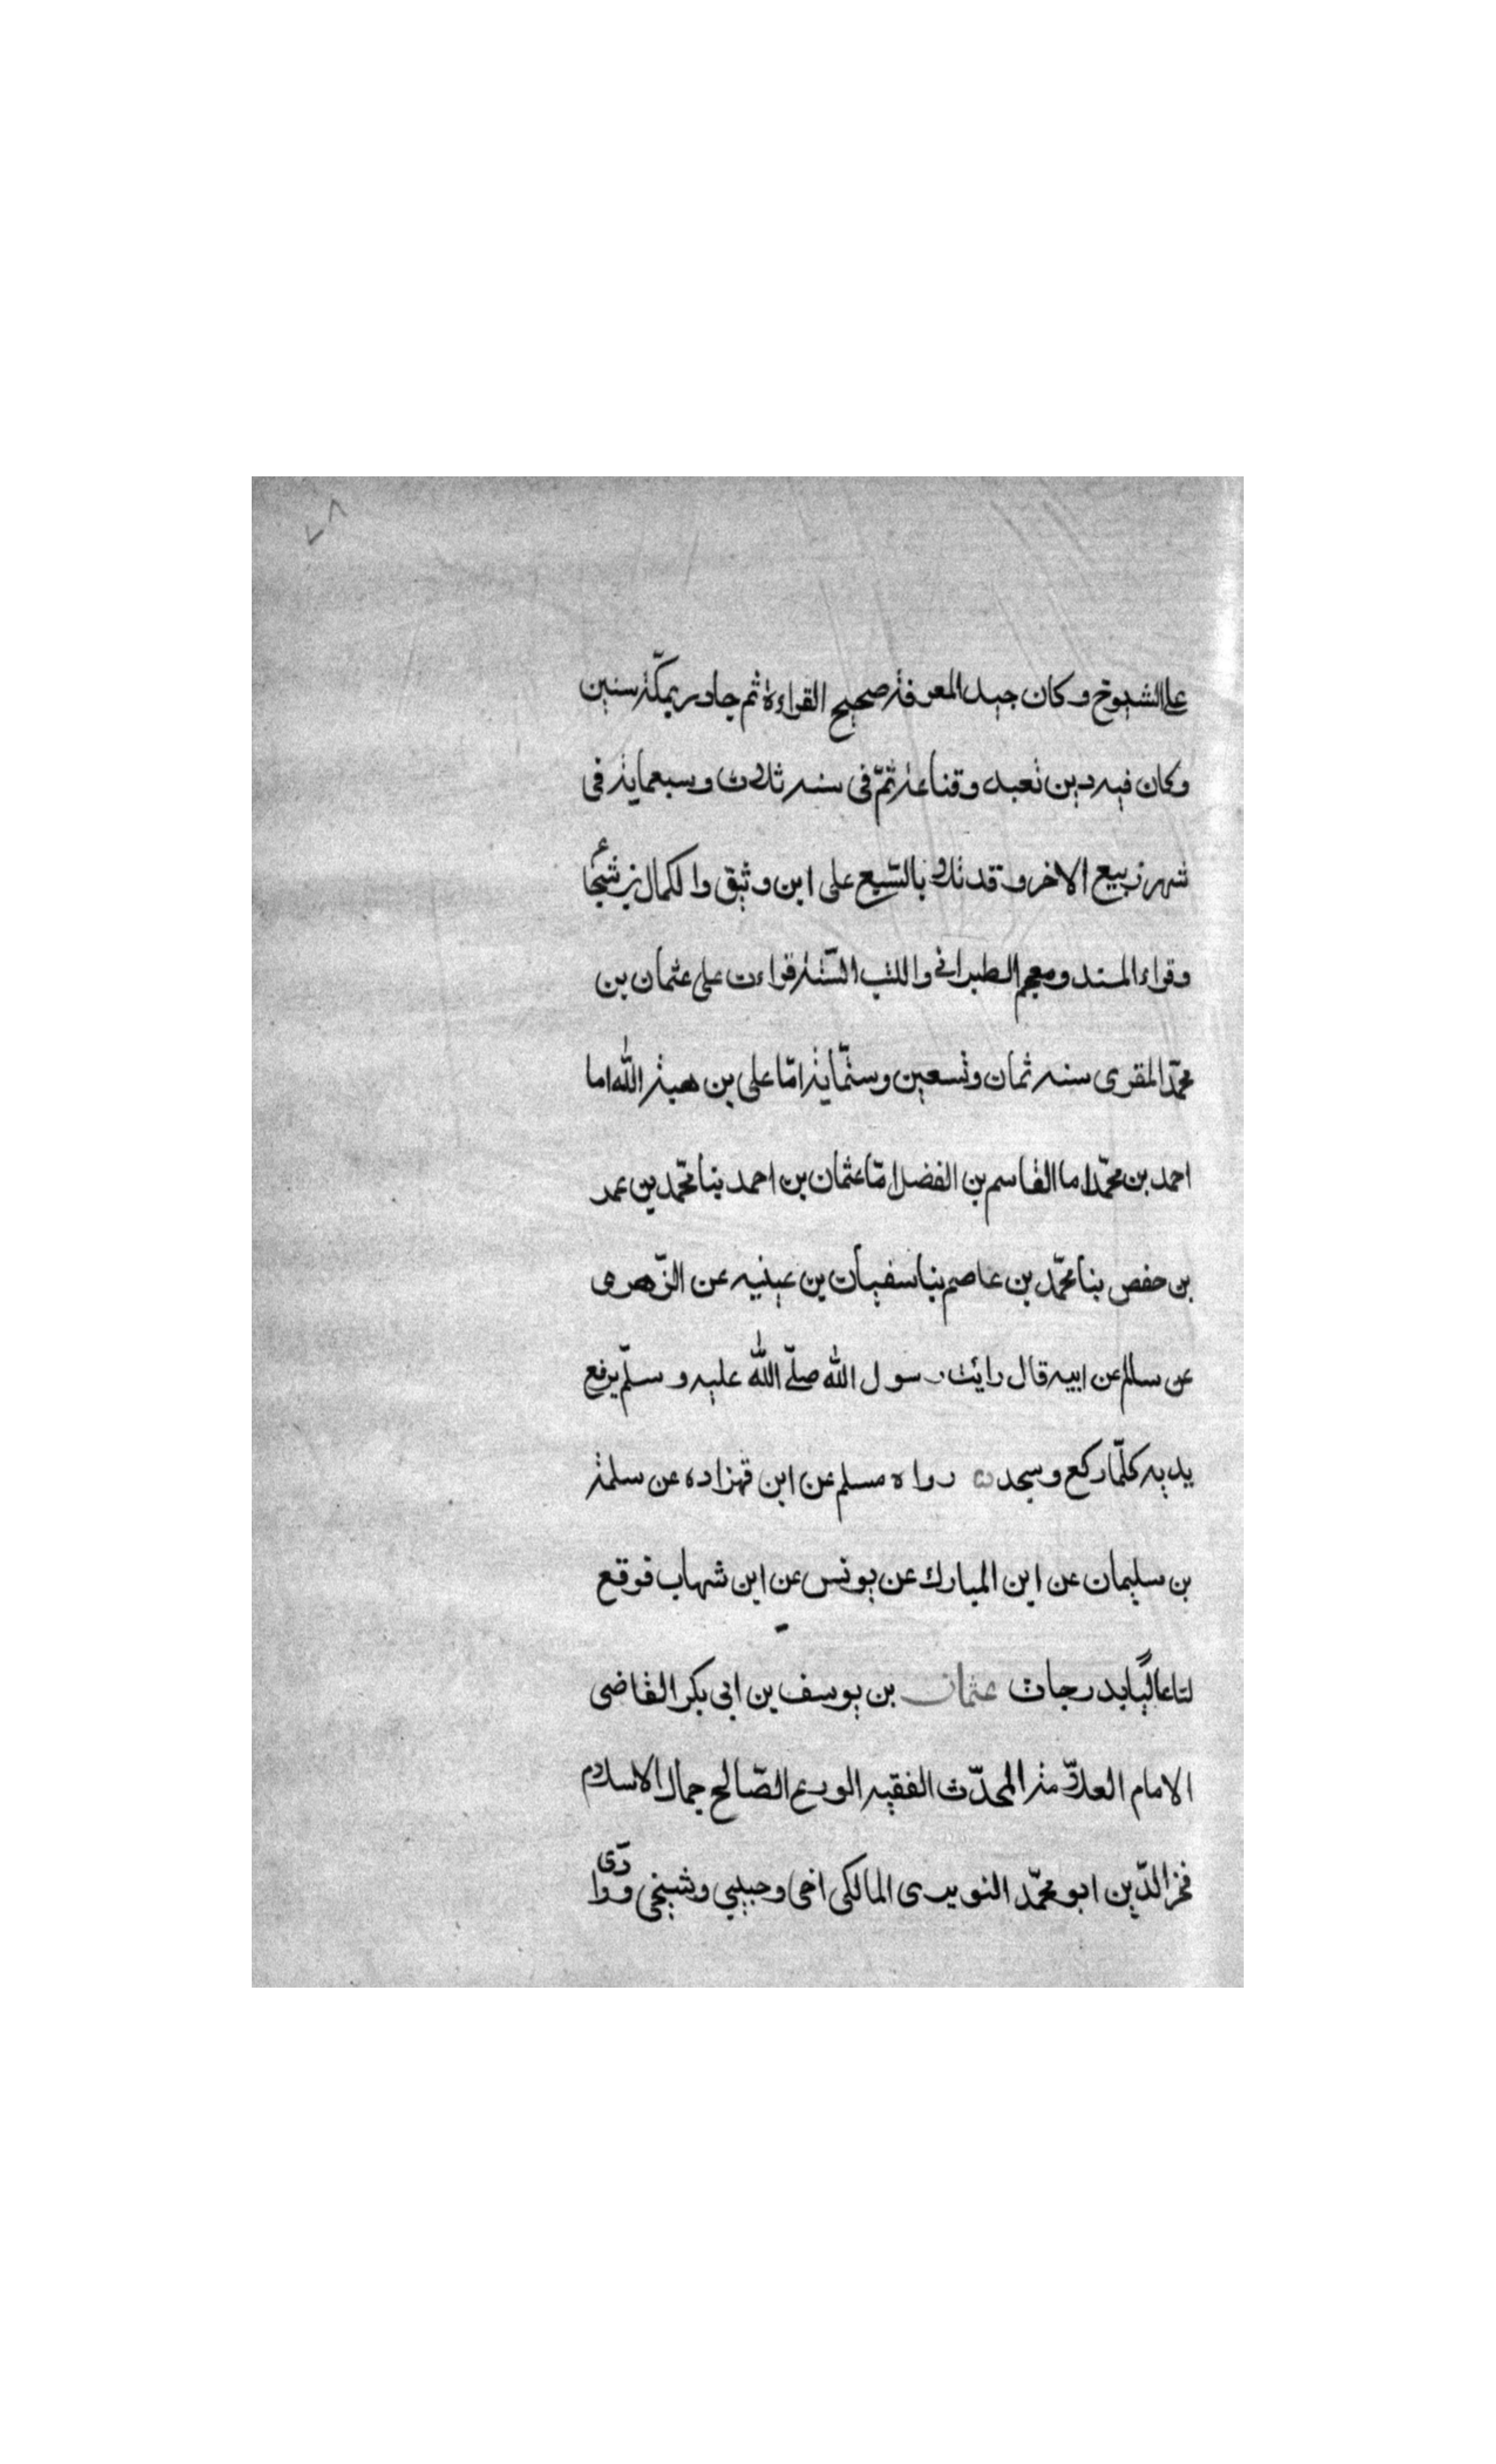 ٧٨
على الشيوخ وكان جيد المعرفة صحيح القراءة ثم جاور بمكّة سنين
وكان فيه دين تعبد وقناعة ثمّ فى سنه ثلاث وسبعماية فى
شهر ربيع الاخر وقد تلا بالسّبع على ابن وثيق والكمال بن شجاع
وقراء المسند ومعجم الطبرانى والكتب السّتة قراءت على عثمان بن
محمّد المقرى سنه ثمان وتسعين وستّماية امّا على بن هبة الله اما
احمد بن محمّد اما القاسم بن الفضل امّا عثمان بن احمد بنا محمّد بن عمر
بن حفص بنا محمّد بن عاصم بنا سفيان بن عينيه عن الزّهرى
عن سالم عن ابيه قال رايت رسول الله صلّى الله عليه وسلّم يرفع
يديه كلّما ركع وسجد رواه مسلم عن ابن قهزاده عن سلمة
بن سليمان عن ابن المبارك عن يونس عن ابن شهاب فوقع
لنا عاليًا بدرجات عثمان بن يوسف بن ابى بكر القاضى
الامام العلاّمة المحدّث الفقيه الورع الصّالح جمال الاسلام
فخر الدّين ابو محمّد النويرى المالكى اخى وحبيبي وشيخى وودّى